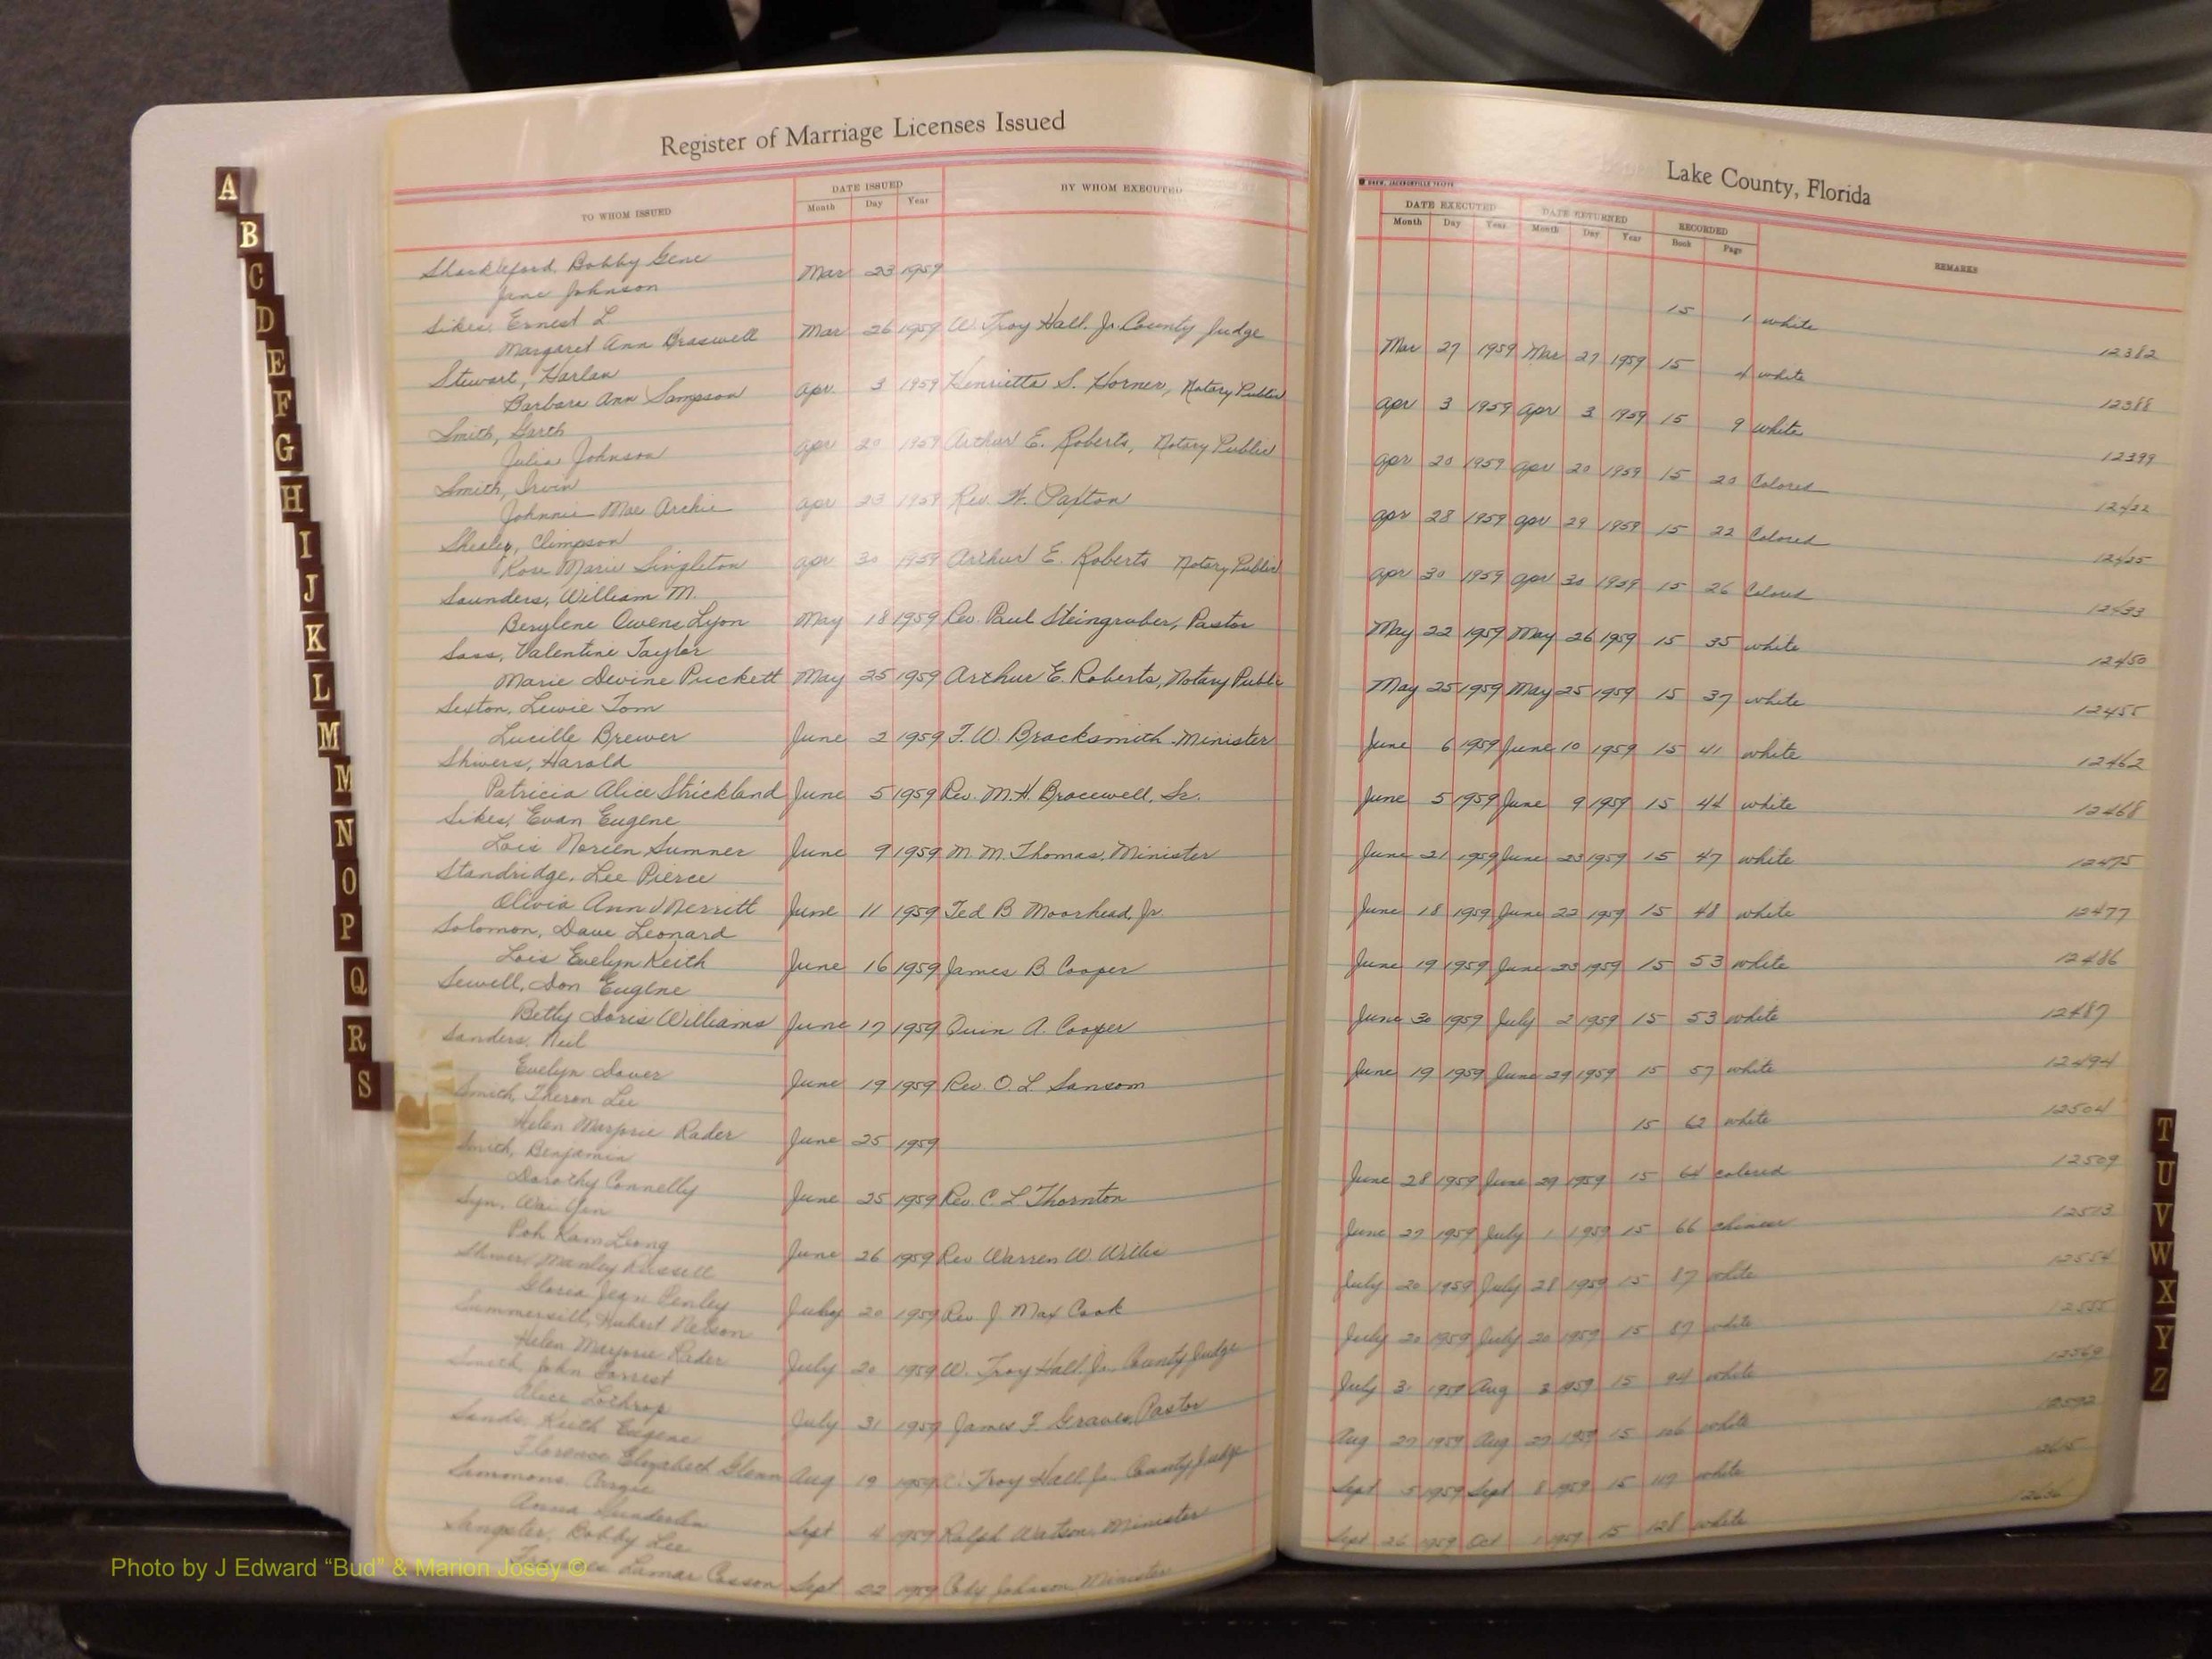 Register of Marriage Licenses Issued
TO WHOM ISSUED DATE ISSUED BY WHOM EXECUTED
Month Day Year
Shackleford, Bobby Gene
Jane Johnson Mar 23 1959
Sikes, Ernest L.
Margaret Ann Braswell Mar 26 1959 W. Troy Hall, Jr. County Judge
Stewart, Harlan
Barbara Ann Sampson Apr. 3 1959 Henrietta S. Horner, Notary Public
Smith, Garth
Julia Johnson Apr 20 1959 Arthur E. Roberts, Notary Public
Smith, Irvin
Johnnie Mae Archie Apr 23 1959 Rev. W. Paxton
Shealey, Climpson
Rose Marie Singleton Apr 30 1959 Arthur E. Roberts Notary Public
Saunders, William M.
Berylene Owens Lyon May 18 1959 Rev. Paul Steingruber, Pastor
Sass, Valentine Taylor
Marie Devine Puckett May 25 1959 Arthur E. Roberts, Notary Public
Sexton, Lewie Tom
Lucille Brewer June 2 1959 T. W. Bracksmith Minister
Shivers, Harold
Patricia Alice Strickland June 5 1959 Rev. M. H. Bracewell, Sr.
Sikes, Evan Eugene
Lois Noreen Sumner June 9 1959 M. M. Thomas, Minister
Standridge, Lee Pierce
Olivia Ann Merritt June 11 1959 Ted B Moorhead, Jr.
Solomon, Dave Leonard
Lois Evelyn Keith June 16 1959 James B Cooper
Sewell, Don Eugene
Betty Doris Williams June 17 1959 Quin A. Cooper
Sanders, Neil
Evelyn Dover June 19 1959 Rev. O. L. Sansom
Smith, Theron Lee
Helen Marjorie Rader June 25 1959
Smith, Benjamin
Dorothy Connelly June 25 1959 Rev. C. L Thornton
Syn, Wai
Poh Kam Leong June 26 1959 Rev Warren W. Willis
Manley Russell
Gloria Jean Penley July 20 1959 Rev J Max Cook
Summersill, Hubert Nelson
Helen Marjorie Rader July 20 1959 W. Troy Hall, Jr., County Judge
Smith, John Forrest
Alice Lothrop July 31 1959 James F Graves, Pastor
Sands, Keith Eugene
Florence Elizabeth Glenn Aug 19 1959 Troy Hall, Jr. County Judge
Simmons,
Anna Sept 4 1959 Ralph Watson, Minister
Sangster, Bobby Lee
Lamar Casson Sept 22 1959 Johnson, Minister
Lake County, Florida
DREW, JACKSONVILLE
DATE EXECUTED DATE RETURNED RECORDED REMARKS
Month Day Year Month Day Year Book Page
15 1 white 12382
Mar 27 1959 Mar 27 1959 15 4 white 12388
Apr 3 1959 Apr 3 1959 15 9 white 12399
Apr 20 1959 Apr 20 1959 15 20 Colored 12422
Apr 28 1959 Apr 29 1959 15 22 Colored 12425
Apr 30 1959 Apr 30 1959 15 26 Colored 12433
May 22 1959 May 26 1959 15 35 white 12450
May 25 1959 May 25 1959 15 37 white 12455
June 6 1959 June 10 1959 15 41 white 12462
June 5 1959 June 9 1959 15 44 white 12468
June 21 1959 June 23 1959 15 47 white 12475
June 18 1959 June 22 1959 15 48 white 12477
June 19 1959 June 23 1959 15 53 white 12486
June 30 1959 July 2 1959 15 53 white 12487
June 19 1959 June 29 1959 15 57 white 12494
15 62 white 12504
June 28 1959 June 29 1959 15 64 colored 12509
June 27 1959 July 1 1959 15 66 chinese 12513
July 20 1959 July 28 1959 15 87 white 12554
July 20 1959 July 20 1959 15 87 white 12555
July 31 1959 Aug 3 1959 15 94 white 12569
Aug 27 1959 Aug 27 1959 15 106 white 12592
Sept 5 1959 Sept 8 1959 15 white
Sept 26 1959 Oct 1 1959 15 128 white
A
B
C
D
E
F
G
H
I
J
K
L
M
M
N
O
P
Q
R
S
T
U
V
W
X
Y
Z
Photo by J Edward “Bud” & Marion Josey ©